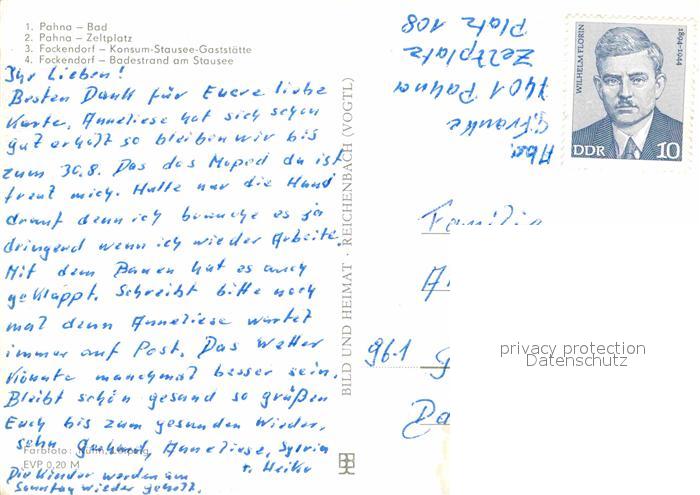 1. Pahna – Bad
2. Pahna – Zeltplatz
3. Fockendorf – Konsum-Stausee-Gaststätte
4. Fockendorf – Badestrand am Stausee
Ihr Lieben!
Besten Dank für Euere liebe
Karte, Anneliese hat sich schon
gut erholt so bleiben wir bis
zum 30.8. Das das Moped da ist
freut mich. Halte nur die Hand
drauf denn ich brauche es ja
dringend wenn ich wieder Arbeite.
Mit dem Bauen hat es auch
geklappt. Schreibt bitte noch
mal denn Anneliese wartet
immer auf Post. Das Wetter
könnte manchmal besser sein.
Bleibt schön gesund so grüßen
Euch bis zum gesunden Wieder,
sehn Gerhard, Anneliese, Sylvia
u. Heike
Die Kinder werden am
Sonntag wieder geholt.
Farbfoto: Kühn, Leipzig
EVP 0,20 M
BILD UND HEIMAT · REICHENBACH (VOGTL)
Abs.
G. Franke
7401 Pahna
Zeltplatz
Platz 108
WILHELM FLORIN
1894-1944
DDR 10
Familie
A
961 G
Da
privacy protection
Datenschutz